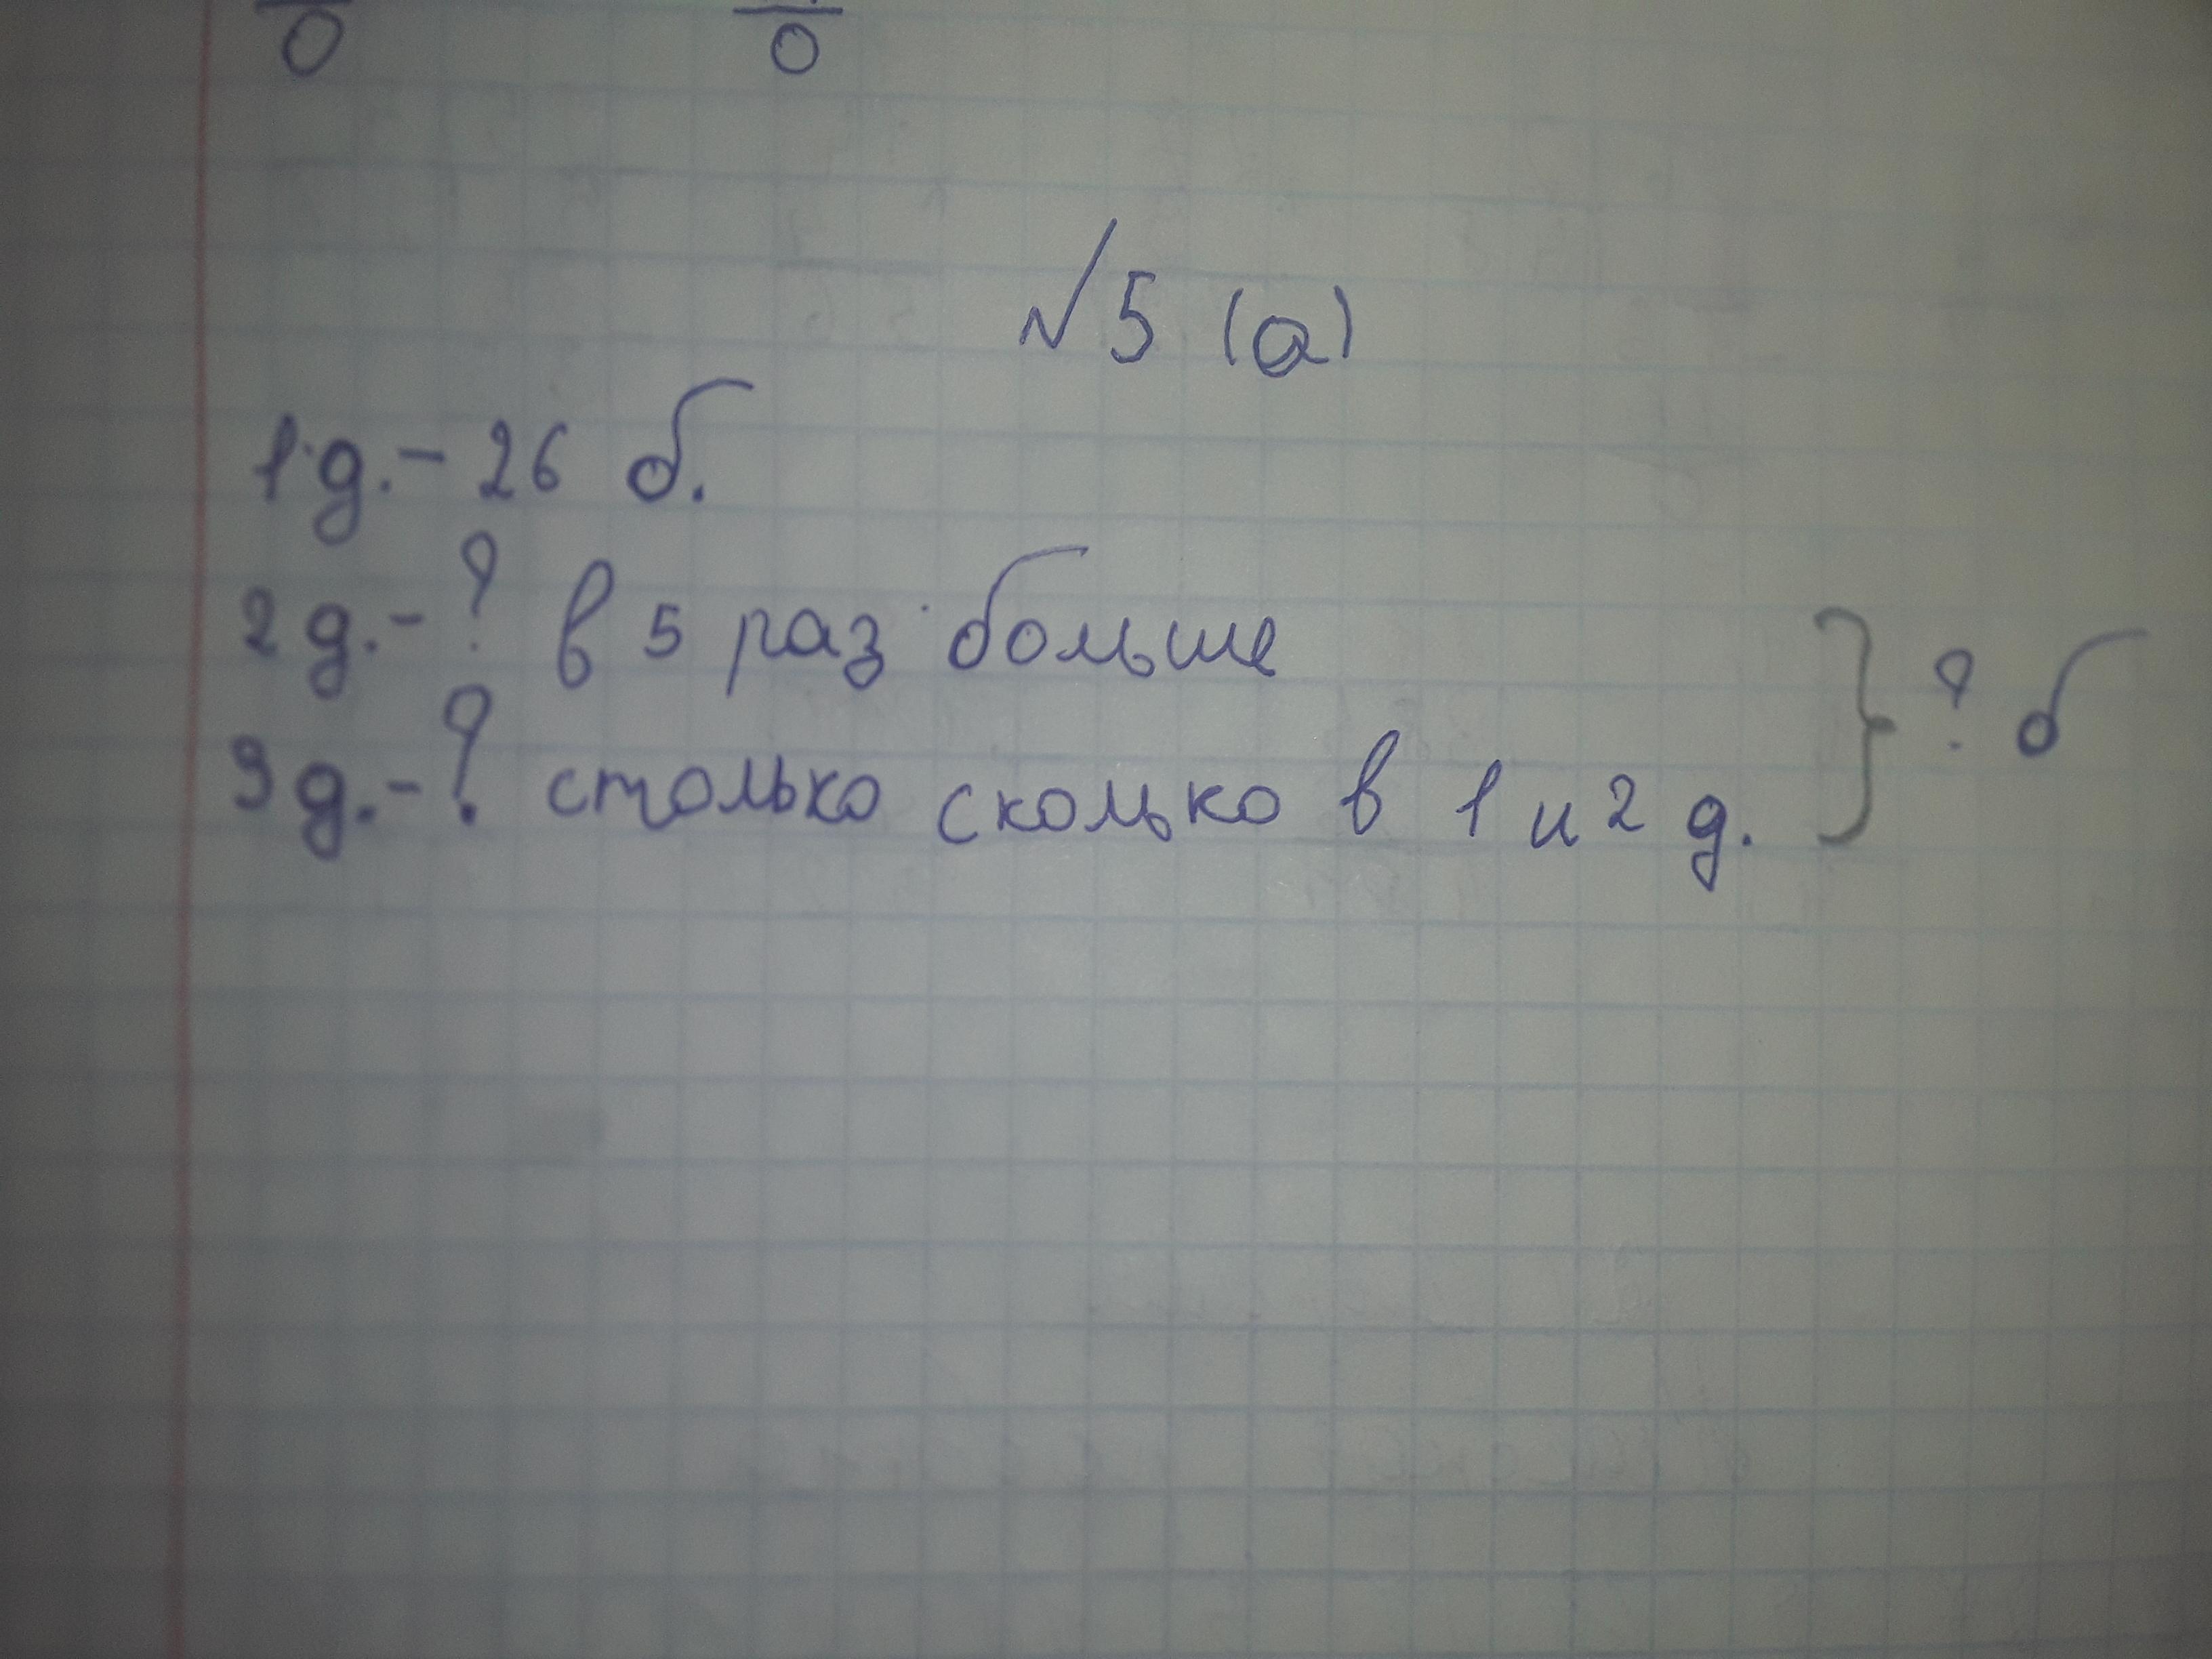 0 0
№ 5 (а)
1 д. - 26 б.
2 д. - ? в 5 раз больше
3 д. - ? столько сколько в 1 и 2 д. } ? б